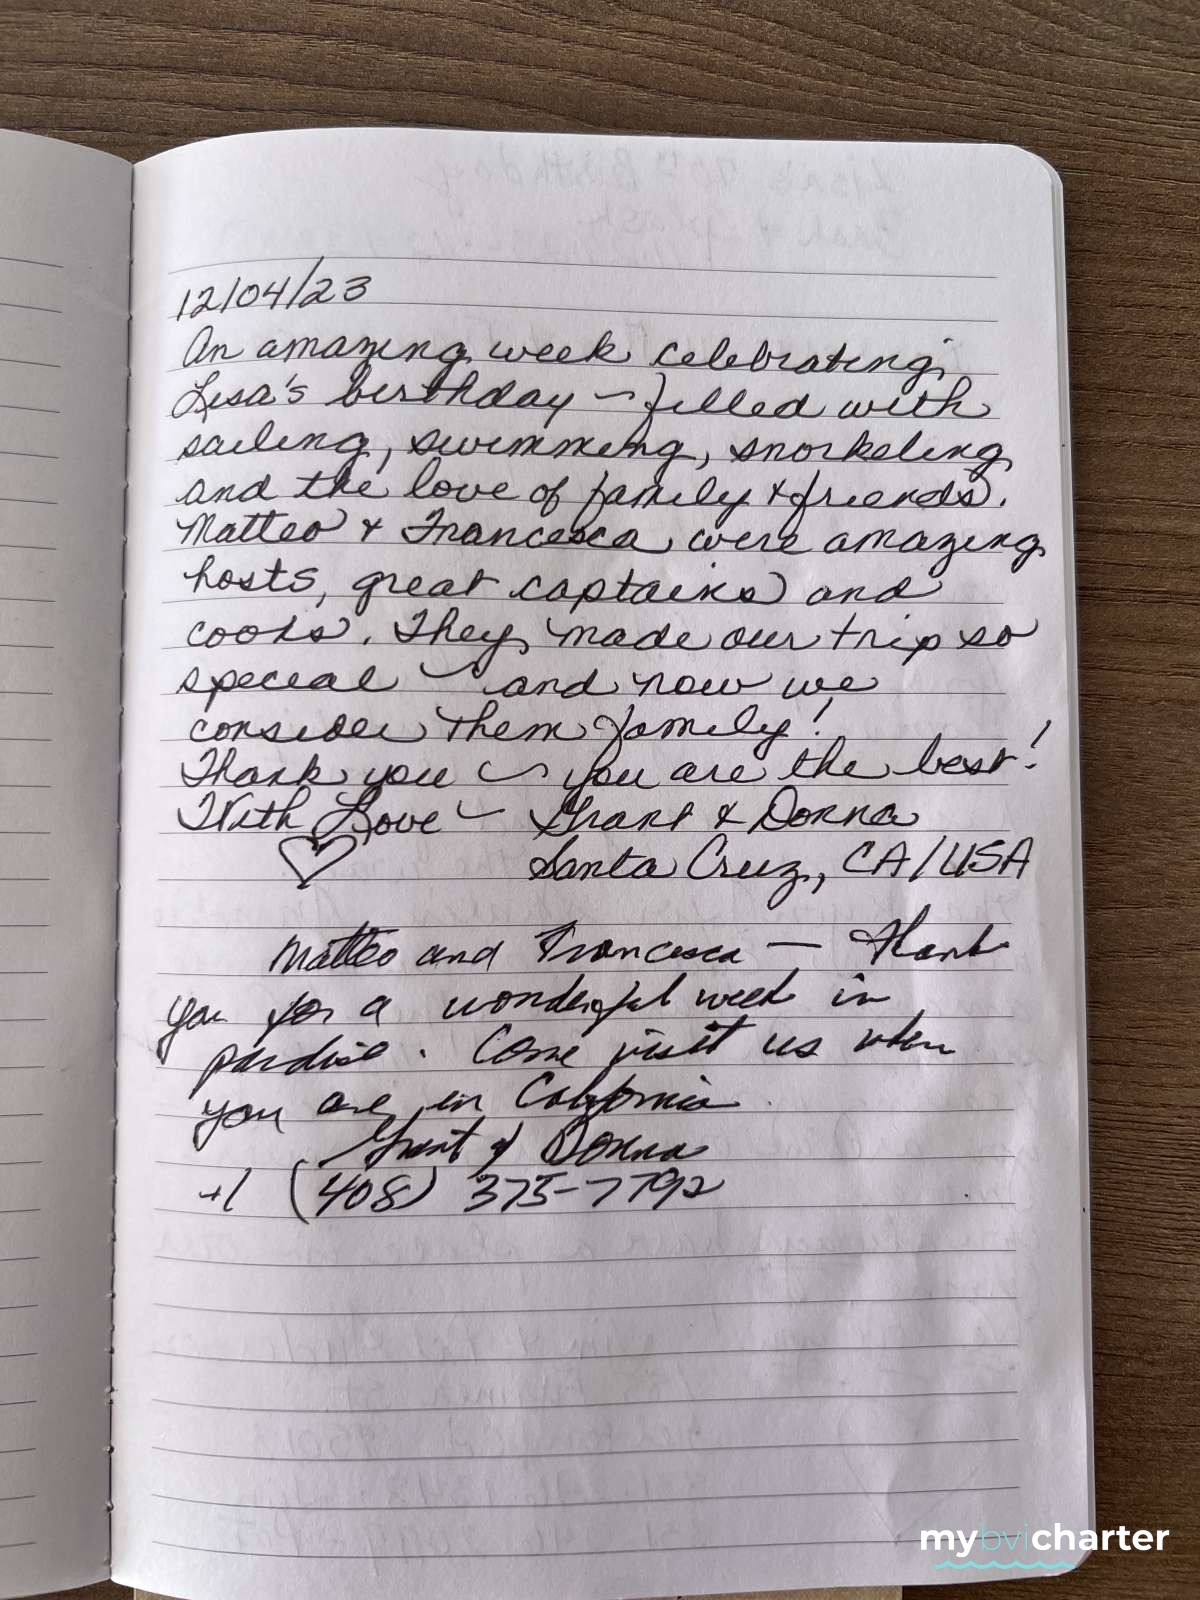 12/04/23
An amazing week celebrating
Lisa's birthday ~ filled with
sailing, swimming, snorkeling
and the love of family & friends.
Matteo & Francesca were amazing
hosts, great captains and
cooks. They made our trip so
special ~ and now we
consider them family!
Thank you ~ you are the best!
With Love ~ Grant & Donna
♡ Santa Cruz, CA/USA
Matteo and Francesca — Thank
you for a wonderful week in
pardise. Come visit us when
you are in California
Grant & Donna
+1 (408) 375-7792
mybvicharter